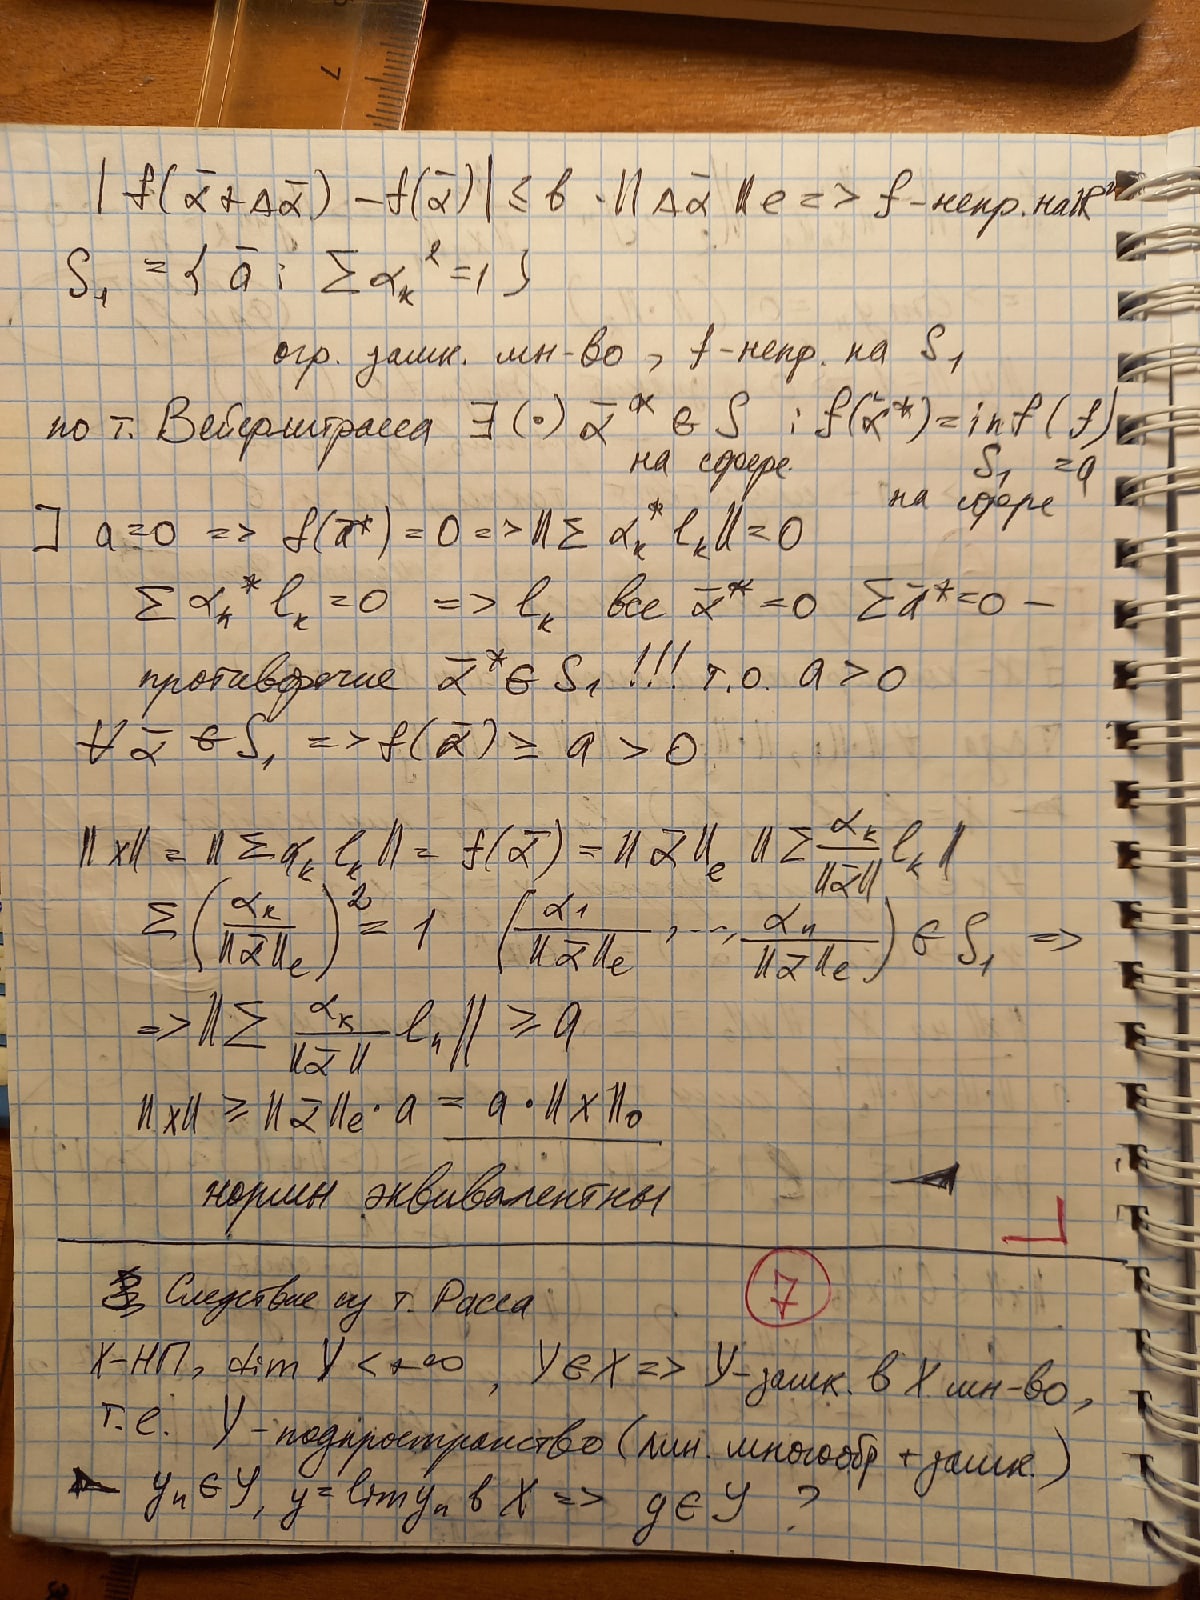 7
| f(ᾱ+Δᾱ) − f(ᾱ) | ≤ b · ‖Δᾱ‖e => f-непр. на ℝⁿ
S₁ = { ā : Σ αₖ² = 1 }
огр. замк. мн-во, f-непр. на S₁
по т. Вейерштрасса ∃ (·) ᾱ* ∈ S : f(ᾱ*) = inf (f)
на сфере S₁ = a
на сфере
] a=0 => f(ᾱ*) = 0 => ‖Σ αₖ* lₖ‖ = 0
Σ αₖ* lₖ = 0 => lₖ все ᾱ* = 0 Σᾱ* = 0 −
противоречие ᾱ* ∈ S₁ !!! т.о. a > 0
∀ ᾱ ∈ S₁ => f(ᾱ) ≥ a > 0
‖x‖ = ‖Σ αₖ lₖ‖ = f(ᾱ) = ‖ᾱ‖e ‖Σ αₖ/‖ᾱ‖ lₖ‖
Σ (αₖ/‖ᾱ‖e)² = 1 (α₁/‖ᾱ‖e, ..., αₙ/‖ᾱ‖e) ∈ S₁ =>
=> ‖Σ αₖ/‖ᾱ‖ lₖ‖ ≥ a
‖x‖ ≥ ‖ᾱ‖e · a = a · ‖x‖₀
нормы эквивалентны
7
Следствие из т. Расса
X-НП, dim Y < +∞, Y ∈ X => Y-замк. в X мн-во,
т.е. Y - подпространство (лин. многообр + замк.)
yₙ ∈ Y, y = lim yₙ в X => y ∈ Y ?